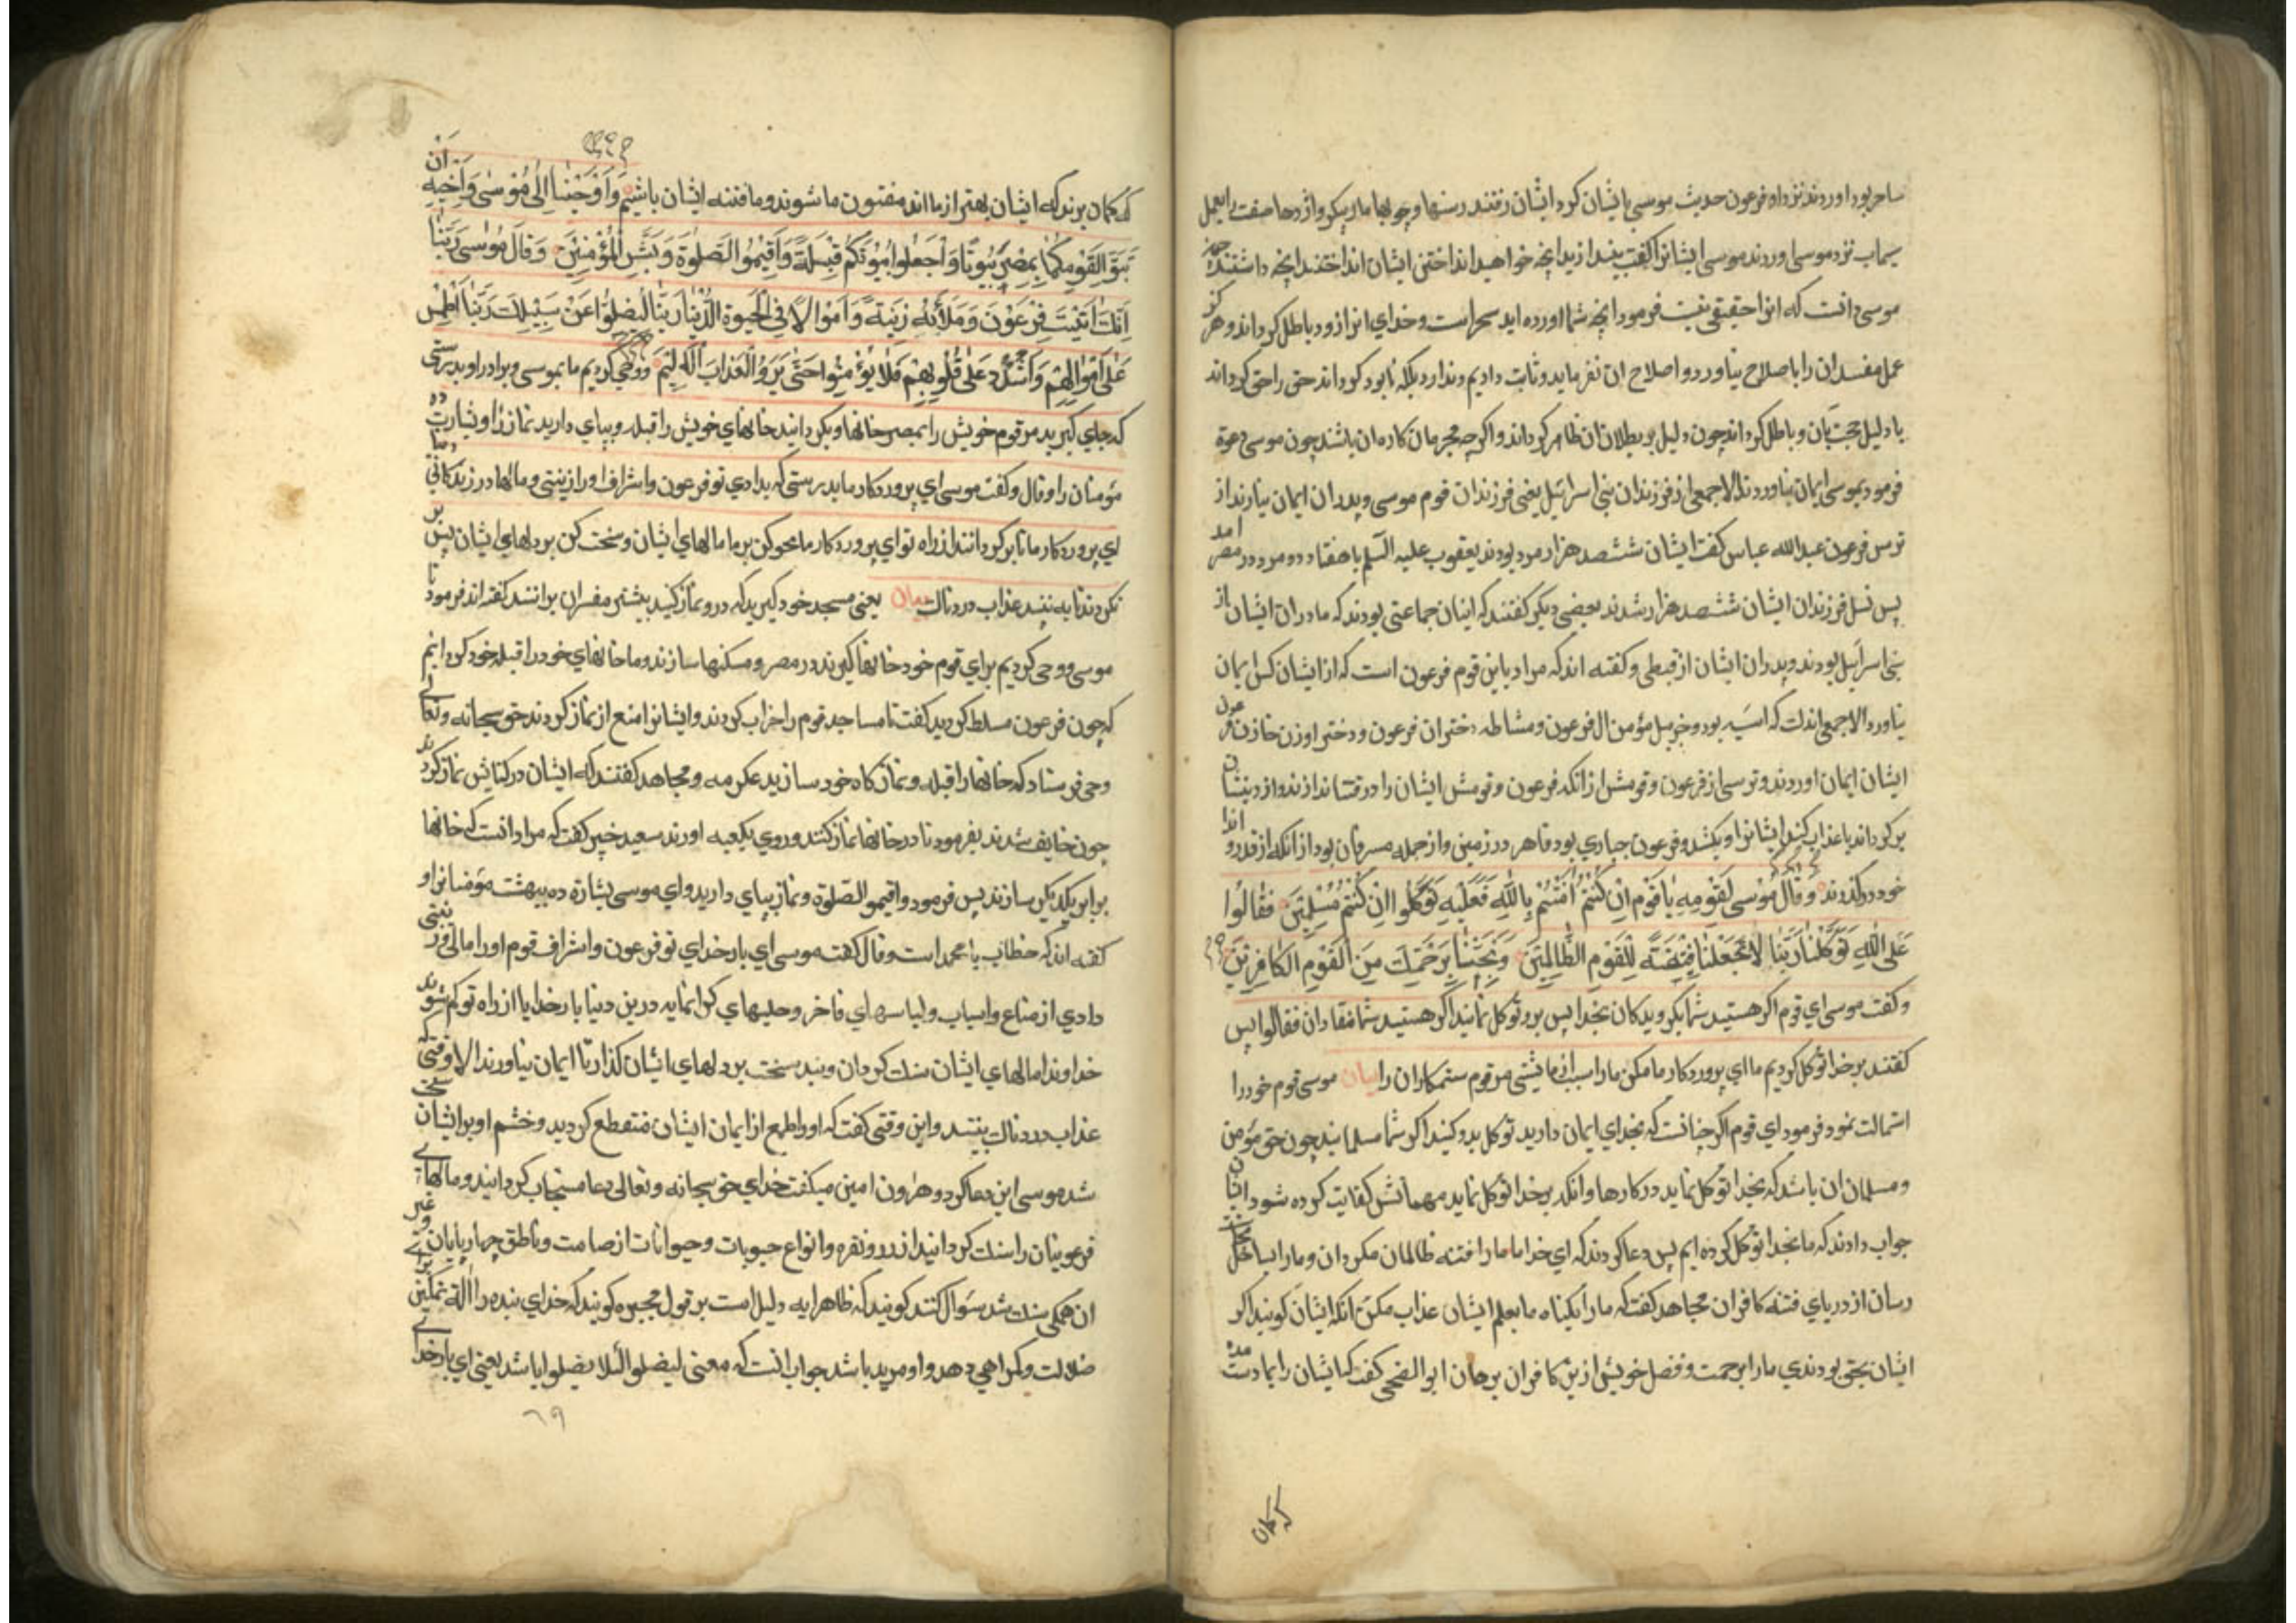 ساحر بود اوردند نزد او فرعون حدیث موسی با ایشان کرد ایشان رفتند رسنها و چوبها مار پیکر و اژدها صفت را بعمل
سیماب نزد موسی اوردند موسی ایشانرا کفت بیندازید انچه خواهید انداختن ایشان انداختند انچه داشتند چون
موسی دانست که انرا حقیقتی نیست فرمود انچه شما اورده اید سحر است و خدای انرا زود باطل کرداند و هرکز
عمل مفسدان را باصلاح نیاورد و اصلاح ان نفرماید و ثابت و دایم ندارد بلکه نابود کرداند حق را حق کرداند
با دلیل حجت ان و باطل کرداند چون دلیل بر بطلان ان ظاهر کرداند و اکرچه مجرمان کاره ان باشند چون موسی دعوة
فرمود بموسی ایمان نیاوردند الا جمعی از فرزندان بنی اسرائیل یعنی فرزندان قوم موسی و پدران ایمان نیارند از
ترس فرعون عبدالله عباس کفت ایشان ششصد هزار مرد بودند یعقوب علیه السلم با هفتاد و دو مرد در مصر امد
پس نسل فرزندان ایشان ششصد هزار شدند بعضی دیکر کفتند که اینان جماعتی بودند که مادران ایشان از
بنی اسرائیل بودند و پدران ایشان از قبطی و کفته اند که مراد باین قوم فرعون است که از ایشان کس ایمان
نیاورد الا جمعی اندک که اسیه بود و خربیل مؤمن ال فرعون و مشاطه دختران فرعون و دختر او زن خازن فرعون
ایشان ایمان اوردند و ترسی از فرعون و قومش از انکه فرعون و قومش ایشان را در فتنه اندازند و از دینشان
برکرداند یا عذاب کند ایشانرا و بکشد و فرعون جباری بود قاهر در زمین و از جمله مسرفان بود از انکه از قدر و اندازه
خود درکذرند وَقَالَ مُوسٰی لِقَوْمِهِ یَا قَوْمِ اِنْ كُنْتُمْ اٰمَنْتُمْ بِاللّٰهِ فَعَلَیْهِ تَوَكَّلُوا اِنْ كُنْتُمْ مُسْلِمِینَ فَقَالُوا
عَلَی اللّٰهِ تَوَكَّلْنَا رَبَّنَا لَا تَجْعَلْنَا فِتْنَةً لِلْقَوْمِ الظَّالِمِینَ وَنَجِّنَا بِرَحْمَتِكَ مِنَ الْقَوْمِ الْكَافِرِینَ
و کفت موسی ای قوم اکر هستید شما بکرویدکان بخدا پس برو توکل نمائید اکر هستید شما منقادان فقالوا پس
کفتند بر خدا توکل کردیم ما ای پروردکار ما مکن ما را سبب ازمایشی مر قوم ستمکاران را بیان موسی قوم خود را
استمالت نمود فرمود ای قوم اکر چنانست که بخدای ایمان دارید توکل بدو کنید اکر شما مسلمانید چون حق مؤمن
و مسلمان ان باشد که بخدا توکل نماید در کارها و انکه بر خدا توکل نماید مهماتش کفایت کرده شود ایشان
جواب دادند که ما بخدا توکل کرده ایم پس دعا کردند که ای خدا ما را فتنه ظالمان مکردان و ما را بساحل نجات
رسان از دریای فتنه کافران مجاهد کفت که ما را بکناه ما بعلم ایشان عذاب مکن انکه ایشان کویند اکر
ایشان بحق بودندی ما را برحمت و فضل خویش ازین کافران برهان ابوالضحی کفت که ایشان را بما دست مده
که کمان
که کمان برند که ایشان بهتر از ما اند مفتون ما شوند و ما فتنه ایشان باشیم وَاَوْحَیْنَا اِلٰی مُوْسٰی وَاَخِیهِ اَنْ
تَبَوَّاٰ لِقَوْمِكُمَا بِمِصْرَ بُیُوتًا وَاجْعَلُوا بُیُوتَكُمْ قِبْلَةً وَاَقِیمُوا الصَّلٰوةَ وَبَشِّرِ الْمُؤْمِنِینَ وَقَالَ مُوسٰی رَبَّنَا
اِنَّكَ اٰتَیْتَ فِرْعَوْنَ وَمَلَأَهُ زِینَةً وَاَمْوَالًا فِی الْحَیٰوةِ الدُّنْیَا رَبَّنَا لِیُضِلُّوا عَنْ سَبِیلِكَ رَبَّنَا اطْمِسْ
عَلٰی اَمْوَالِهِمْ وَاشْدُدْ عَلٰی قُلُوبِهِمْ فَلَا یُؤْمِنُوا حَتّٰی یَرَوُا الْعَذَابَ الْاَلِیمَ و وحی کردیم ما بموسی و برادر او بدرستی
که جای کیرید مر قوم خویش را بمصر خانها و بکردانید خانهای خویش را قبله و بپای دارید نماز را و بشارت ده
مؤمنان را و قال و کفت موسی ای پروردکار ما بدرستی که بدادی تو فرعون و اشراف او را زینتی و مالها در زندکانی دنیا
ای پروردکار ما تا برکردانند از راه تو ای پروردکار ما محو کن بر ما مالهای ایشان و سخت کن بر دلهای ایشان پس
نکروند تا به بینند عذاب دردناک بیان یعنی مسجد خود کیرید که درو نماز کنید بیشتر مفسران برانند کفته اند فرمود تا
موسی و وحی کردیم برای قوم خود خانها کیرند در مصر و مسکنها سازند و ما خانهای خود را قبله خود کردانیم
که چون فرعون مسلط کردید کفت تا مساجد قوم را خراب کردند و ایشانرا منع از نماز کردند حق سبحانه و تعالی
وحی فرستاد که خانها را قبله و نمازکاه خود سازید عکرمه و مجاهد کفتند که ایشان در کنائس نماز کردند
چون خایف شدند بفرمود تا در خانها نماز کنند و روی بکعبه اورند سعید جبیر کفت که مراد انست که خانها
برابر یکدیکر سازند پس فرمود و اقیموا الصلوة و نماز بپای دارید و ای موسی بشارة ده ببهشت مؤمنانرا و
کفته اند که خطاب با محمد است و قال کفت موسی ای بار خدای تو فرعون و اشراف قوم او را مالی و زینتی
دادی از متاع و اسباب و لباسهای فاخر و حلیهای کرانمایه درین دنیا بار خدایا از راه تو کم شوند
خداوندا مالهای ایشان سنک کردان و بند سخت بر دلهای ایشان کذار تا ایمان نیاورند الا وقتی که
عذاب دردناک بینند و این وقتی کفت که او را طمع از ایمان ایشان منقطع کردید و خشم او بر ایشان سخت
شد موسی این دعا کرد و هارون امین میکفت خدای حق سبحانه و تعالی دعا مستجاب کردانید و مالهای
فرعونیان را سنک کردانید از زر و نقره و انواع حبوبات و حیوانات از صامت و ناطق چهارپایان و غیر
ان همکی سنک شد سؤال کنند کویند که ظاهر ایه دلیل است بر قول مجبره کویند که خدای بنده را الة تمکین برای
ضلالت و کمراهی دهد و او مرید باشد جواب انست که معنی لیضلوا لئلا یضلوا باشد یعنی ای بار خدای
٦٩